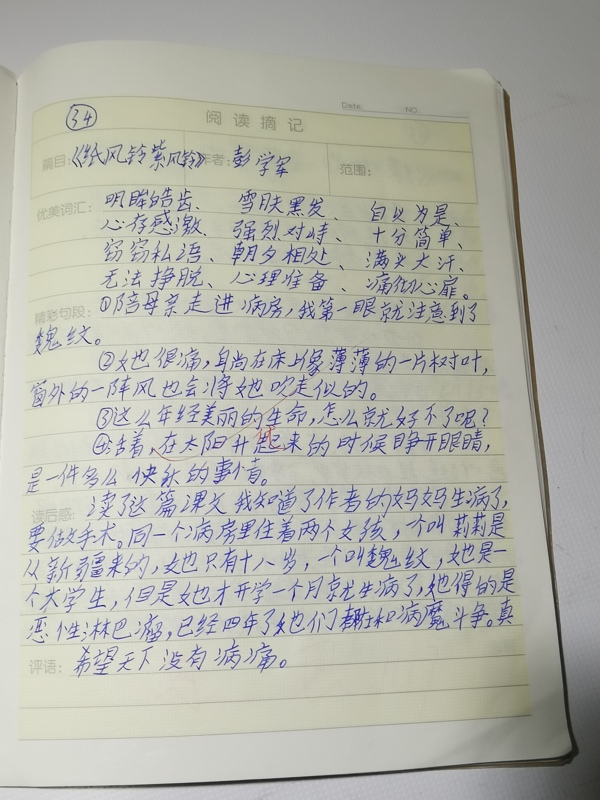 Date: NO.
34
阅读摘记
篇目:《纸风铃紫风铃》 作者: 彭学军 范围:
优美词汇: 明眸皓齿、 雪肤黑发、 自以为是、
心存感激、 强烈对峙、 十分简单、
窃窃私语、 朝夕相处、 满头大汗、
无法挣脱、 心理准备、 痛彻心扉。
精彩句段: ①陪母亲走进病房,我第一眼就注意到了
魏纹。
②她很痛,身尚在床上像薄薄的一片树叶,
窗外的一阵风也会将她吹走似的。
③这么年经美丽的生命,怎么就好不了呢?
④活着,在太阳升起来的时候睁开眼睛,
是一件多么快乐的事情。
读后感: 读了这篇课文我知道了作者的妈妈生病了,
要做手术。同一个病房里住着两个女孩,个叫莉莉是
从新疆来的,她只有十八岁,一个叫魏纹,她是一
个大学生,但是她才开学一个月就生病了,她得的是
恶性淋巴瘤,已经四年了她们都在和病魔斗争。真
评语: 希望天下没有病痛。